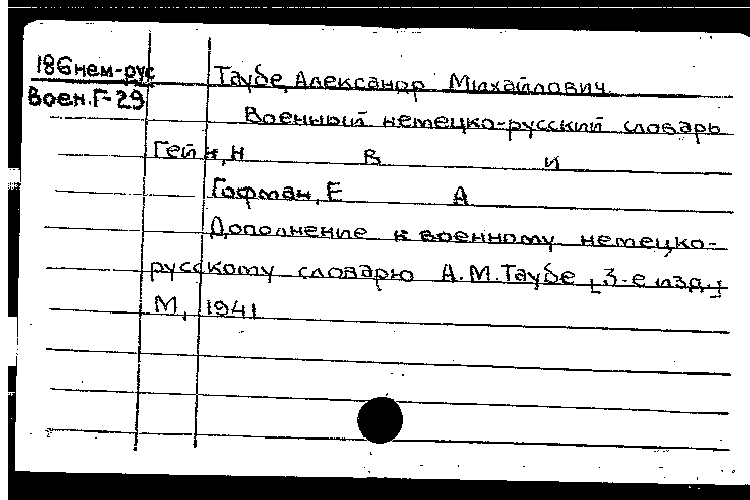 186 нем-рус
Таубе, Александр Михайлович.
Воен.Г-29
Военный немецко-русский словарь
Гейн, Н В и
Гофман, Е А
Дополнение к военному немецко-
русскому словарю А.М.Таубе [3-е изд.]
М, 1941